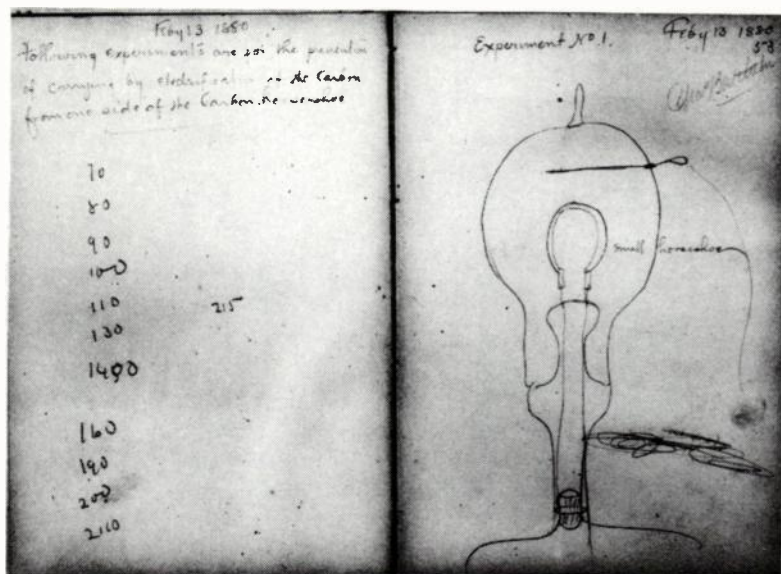 Feby 13 1880
Following experiments are for the prevention
of carrying by electrification of the Carbon
from one side of the Carbon
70
80
90
100
110
215
130
1400
160
190
200
2110
Experiment No. 1.
Feby 13 1880
small horseshoe